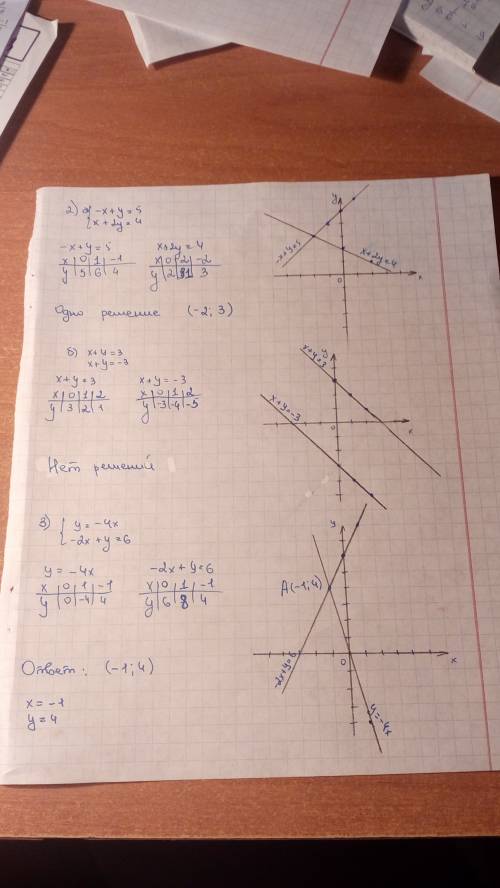 2) a) -x+y=5
{x+2y=4
-x+y=5 x+2y=4
x | 0 | 1 | -1 x | 0 | 2 | -2
y | 5 | 6 | 4 y | 2 | 1 | 3
Одно решение (-2; 3)
y
-x+y=5
x+2y=4
0
x
б) x+y=3
x+y=-3
x+y=3 x+y=-3
x | 0 | 1 | 2 x | 0 | 1 | 2
y | 3 | 2 | 1 y | -3 | -4 | -5
Нет решений
y
x+y=3
x+y=-3
0
x
3) { y=-4x
-2x+y=6
y=-4x -2x+y=6
x | 0 | 1 | -1 x | 0 | 1 | -1
y | 0 | -4 | 4 y | 6 | 8 | 4
Ответ: (-1; 4)
x=-1
y=4
y
A(-1; 4)
-2x+y=6
0
x
y=-4x